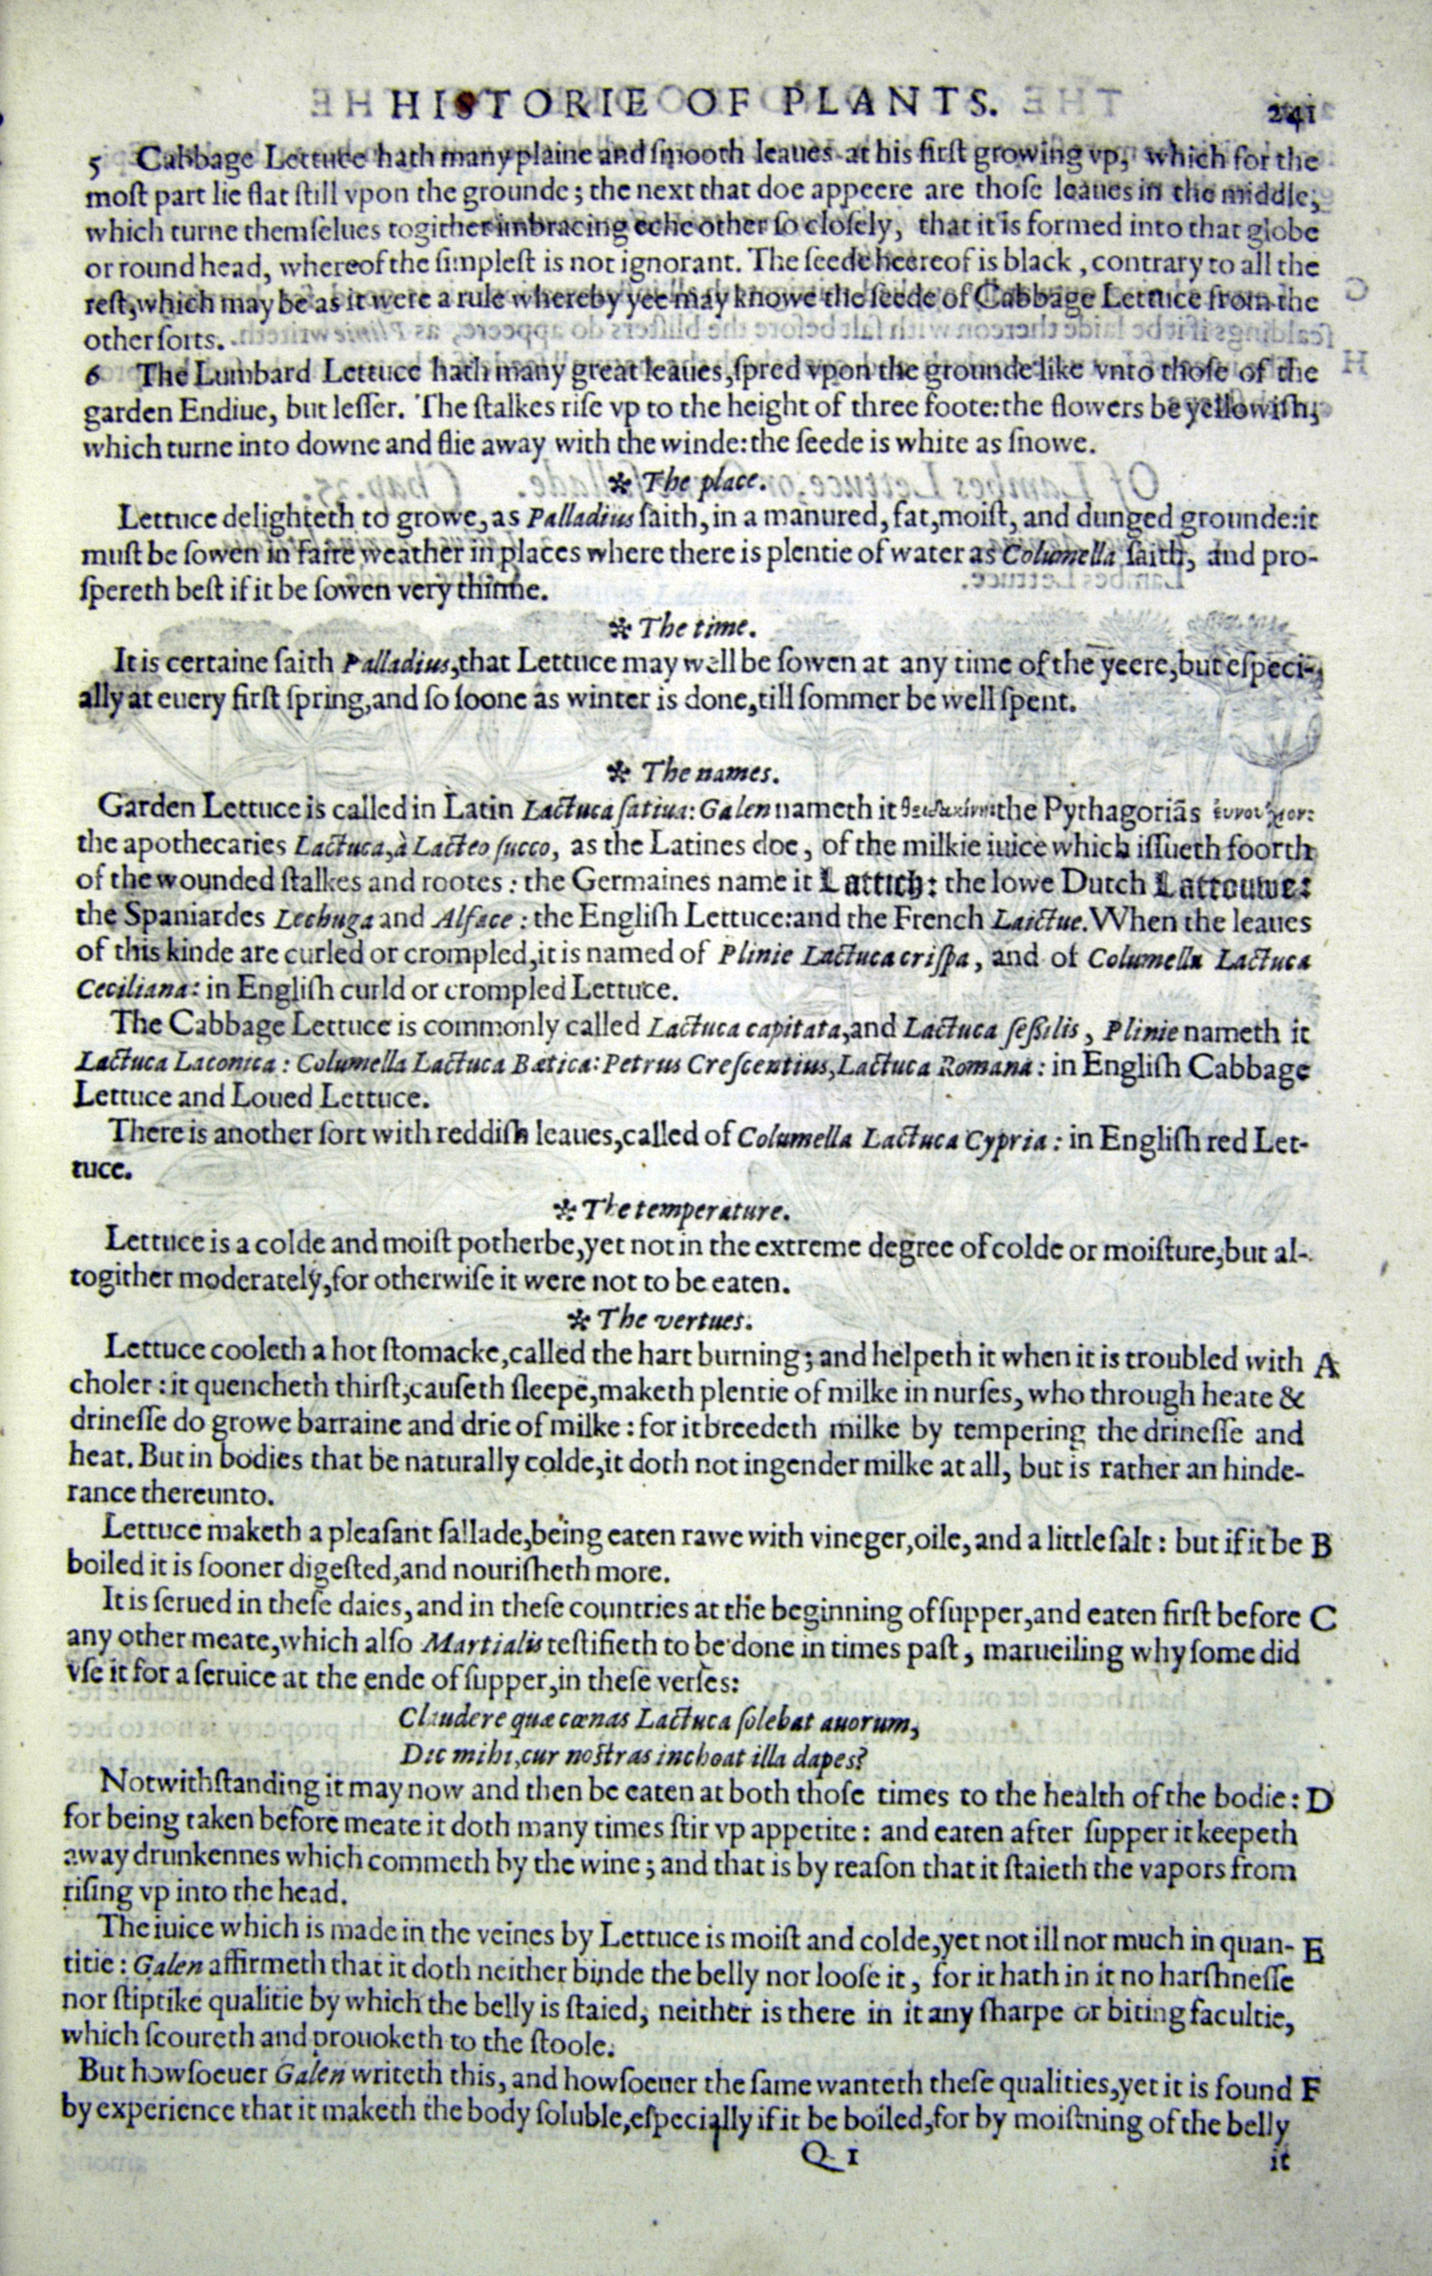 HISTORIE OF PLANTS. 241
5 Cabbage Lettuce hath many plaine and ſmooth leaues at his firſt growing vp, which for the
moſt part lie flat ſtill vpon the grounde; the next that doe appeere are thoſe leaues in the middle,
which turne themſelues togither imbracing eche other ſo cloſely, that it is formed into that globe
or round head, whereof the ſimpleſt is not ignorant. The ſeede heereof is black, contrary to all the
reſt, which may be as it were a rule whereby yee may knowe the ſeede of Cabbage Lettuce from the
other ſorts.
6 The Lumbard Lettuce hath many great leaues, ſpred vpon the grounde like vnto thoſe of the
garden Endiue, but leſſer. The ſtalkes riſe vp to the height of three foote: the flowers be yellowiſh,
which turne into downe and flie away with the winde: the ſeede is white as ſnowe.
* The place.
Lettuce delighteth to growe, as Palladius ſaith, in a manured, fat, moiſt, and dunged grounde: it
muſt be ſowen in faire weather in places where there is plentie of water as Columella ſaith, and pro-
ſpereth beſt if it be ſowen very thinne.
* The time.
It is certaine ſaith Palladius, that Lettuce may well be ſowen at any time of the yeere, but eſpeci-
ally at euery firſt ſpring, and ſo ſoone as winter is done, till ſommer be well ſpent.
* The names.
Garden Lettuce is called in Latin Lactuca ſatiua: Galen nameth it the Pythagoriãs
the apothecaries Lactuca, à Lacteo ſucco, as the Latines doe, of the milkie iuice which iſſueth foorth
of the wounded ſtalkes and rootes: the Germaines name it Lattich: the lowe Dutch Lattouwe:
the Spaniardes Lechuga and Alface: the Engliſh Lettuce: and the French Laictue. When the leaues
of this kinde are curled or crompled, it is named of Plinie Lactuca criſpa, and of Columella Lactuca
Ceciliana: in Engliſh curld or crompled Lettuce.
The Cabbage Lettuce is commonly called Lactuca capitata, and Lactuca ſeſsilis, Plinie nameth it
Lactuca Laconica: Columella Lactuca Bætica: Petrus Creſcentius, Lactuca Romana: in Engliſh Cabbage
Lettuce and Loued Lettuce.
There is another ſort with reddiſh leaues, called of Columella Lactuca Cypria: in Engliſh red Let-
tuce.
* The temperature.
Lettuce is a colde and moiſt potherbe, yet not in the extreme degree of colde or moiſture, but al-
togither moderately, for otherwiſe it were not to be eaten.
* The vertues.
Lettuce cooleth a hot ſtomacke, called the hart burning; and helpeth it when it is troubled with A
choler: it quencheth thirſt, cauſeth ſleepe, maketh plentie of milke in nurſes, who through heate &
drineſſe do growe barraine and drie of milke: for it breedeth milke by tempering the drineſſe and
heat. But in bodies that be naturally colde, it doth not ingender milke at all, but is rather an hinde-
rance thereunto.
Lettuce maketh a pleaſant ſallade, being eaten rawe with vineger, oile, and a little ſalt: but if it be B
boiled it is ſooner digeſted, and nouriſheth more.
It is ſerued in theſe daies, and in theſe countries at the beginning of ſupper, and eaten firſt before C
any other meate, which alſo Martialis teſtifieth to be done in times paſt, marueiling why ſome did
vſe it for a ſeruice at the ende of ſupper, in theſe verſes:
Claudere quæ cœnas Lactuca ſolebat auorum,
Dic mihi, cur noſtras inchoat illa dapes?
Notwithſtanding it may now and then be eaten at both thoſe times to the health of the bodie: D
for being taken before meate it doth many times ſtir vp appetite: and eaten after ſupper it keepeth
away drunkennes which commeth by the wine; and that is by reaſon that it ſtaieth the vapors from
riſing vp into the head.
The iuice which is made in the veines by Lettuce is moiſt and colde, yet not ill nor much in quan- E
titie: Galen affirmeth that it doth neither binde the belly nor looſe it, for it hath in it no harſhneſſe
nor ſtiptike qualitie by which the belly is ſtaied, neither is there in it any ſharpe or biting facultie,
which ſcoureth and prouoketh to the ſtoole.
But howſoeuer Galen writeth this, and howſoeuer the ſame wanteth theſe qualities, yet it is found F
by experience that it maketh the body ſoluble, eſpecially if it be boiled, for by moiſtning of the belly
Q 1 it